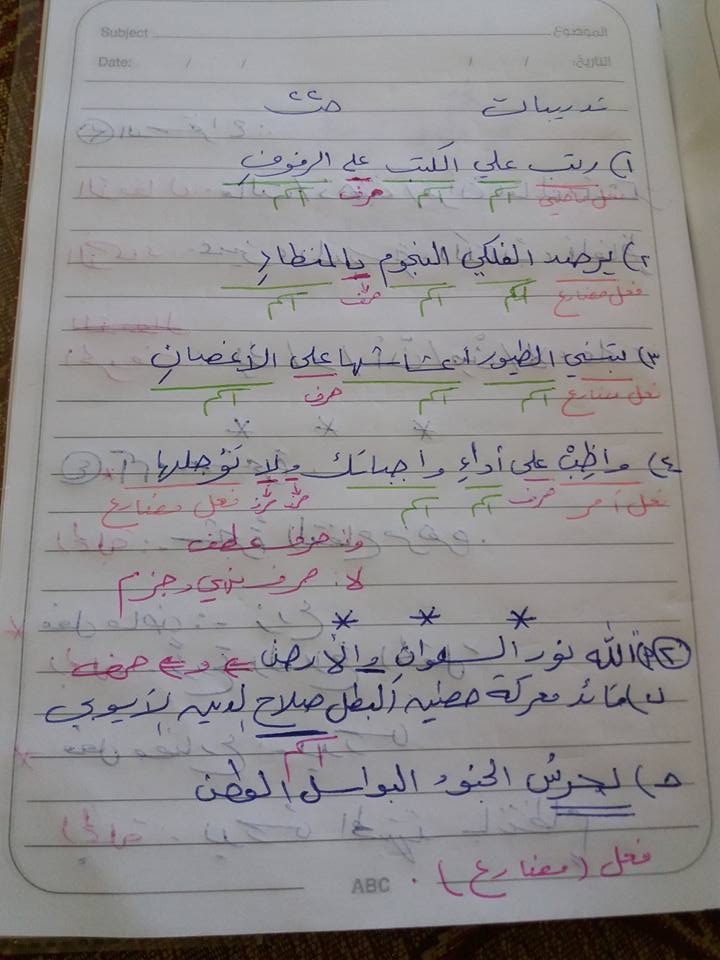 Subject الموضوع
Date: / / / / التاريخ:
تدريبات ص٢٢
١) رتب علي الكتب على الرفوفِ
فعل ماضي اسم اسم حرف اسم
٢) يرصد الفلكي النجوم بالمنظارِ
فعل مضارع اسم اسم حرف اسم
٣) تبني الطيور أعشاشها على الأغصانِ
فعل مضارع اسم اسم حرف اسم
* * *
٤) واظِبْ على أداءِ واجباتك ولا تؤجلها
فعل أمر حرف اسم اسم حرف حرف فعل مضارع
و: حرف عطف
لا: حرف نهي وجزم
* * *
٢) أ) الله نور السموات والأرض ← و ← حرف
ب) قائد معركة حطين البطل صلاح الدين الأيوبي
اسم
ج) يحرسُ الجنود البواسل الوطن
فعل (مضارع).
ABC